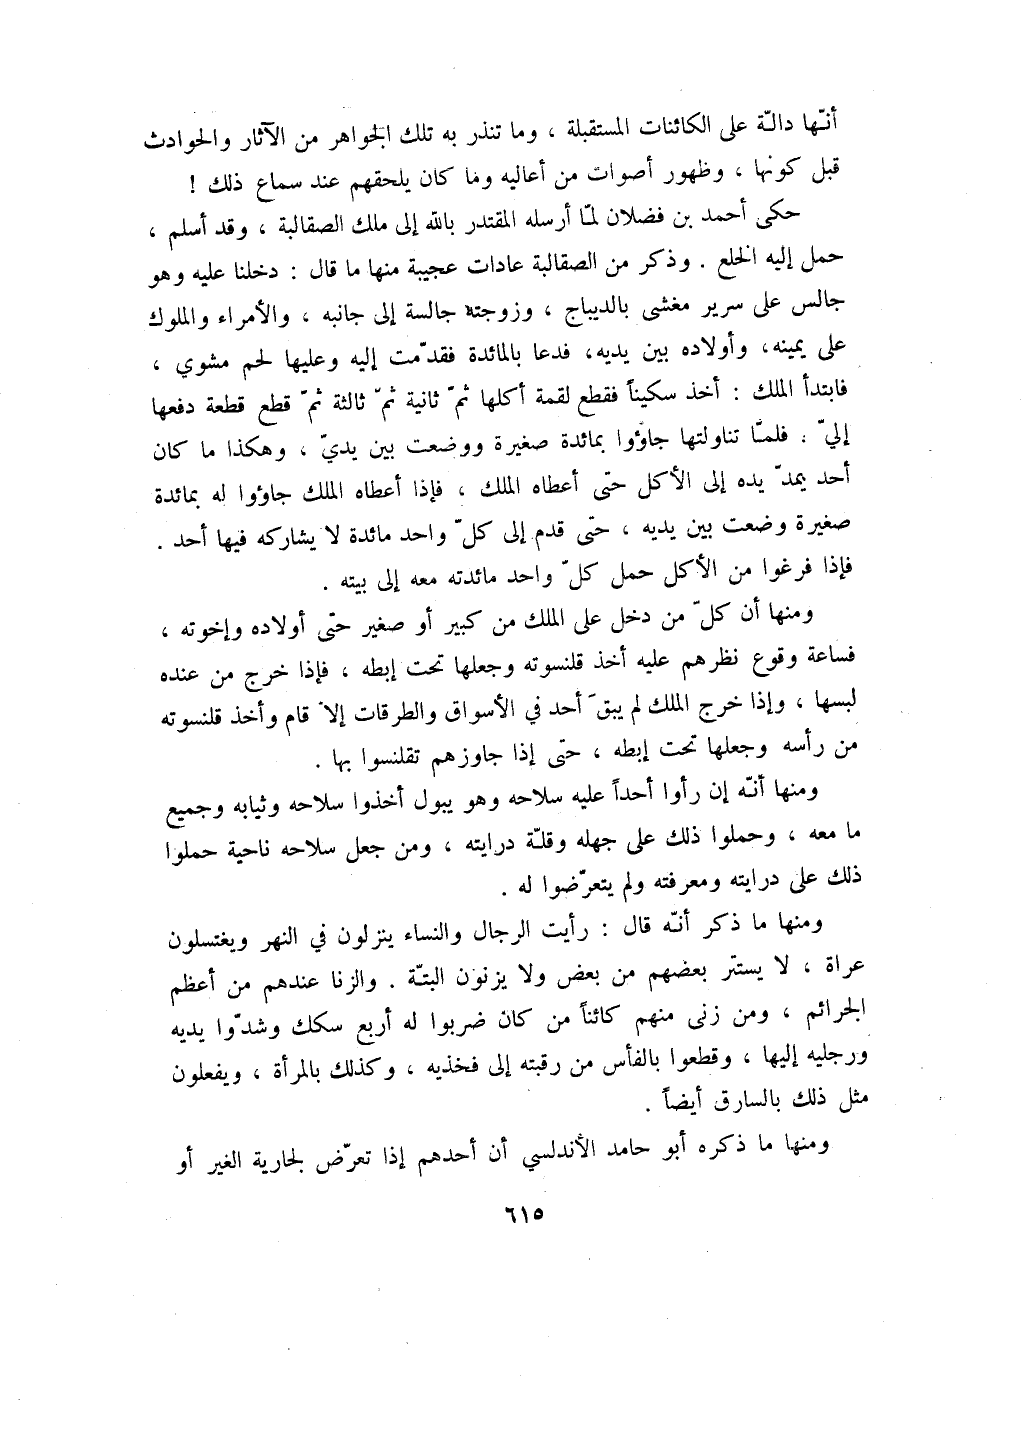 أنّها دالّة على الكائنات المستقبلة ، وما تنذر به تلك الجواهر من الآثار والحوادث
قبل كونها ، وظهور أصوات من أعاليه وما كان يلحقهم عند سماع ذلك !
حكى أحمد بن فضلان لمّا أرسله المقتدر بالله إلى ملك الصقالبة ، وقد أسلم ،
حمل إليه الخلع . وذكر من الصقالبة عادات عجيبة منها ما قال : دخلنا عليه وهو
جالس على سرير مغشى بالديباج ، وزوجته جالسة إلى جانبه ، والأمراء والملوك
على يمينه، وأولاده بين يديه، فدعا بالمائدة فقدّمت إليه وعليها لحم مشوي ،
فابتدأ الملك : أخذ سكيناً فقطع لقمة أكلها ثمّ ثانية ثمّ ثالثة ثمّ قطع قطعة دفعها
إليّ . فلمّا تناولتها جاؤوا بمائدة صغيرة ووضعت بين يديّ ، وهكذا ما كان
أحد يمدّ يده إلى الأكل حتّى أعطاه الملك ، فإذا أعطاه الملك جاؤوا له بمائدة
صغيرة وضعت بين يديه ، حتّى قدم إلى كلّ واحد مائدة لا يشاركه فيها أحد .
فإذا فرغوا من الأكل حمل كلّ واحد مائدته معه إلى بيته .
ومنها أن كلّ من دخل على الملك من كبير أو صغير حتّى أولاده وإخوته ،
فساعة وقوع نظرهم عليه أخذ قلنسوته وجعلها تحت إبطه ، فإذا خرج من عنده
لبسها ، وإذا خرج الملك لم يبقَ أحد في الأسواق والطرقات إلاّ قام وأخذ قلنسوته
من رأسه وجعلها تحت إبطه ، حتّى إذا جاوزهم تقلنسوا بها .
ومنها أنّه إن رأوا أحداً عليه سلاحه وهو يبول أخذوا سلاحه وثيابه وجميع
ما معه ، وحملوا ذلك على جهله وقلّة درايته ، ومن جعل سلاحه ناحية حملوا
ذلك على درايته ومعرفته ولم يتعرّضوا له .
ومنها ما ذكر أنّه قال : رأيت الرجال والنساء ينزلون في النهر ويغتسلون
عراة ، لا يستتر بعضهم من بعض ولا يزنون البتّة . والزنا عندهم من أعظم
الجرائم ، ومن زنى منهم كائناً من كان ضربوا له أربع سكك وشدّوا يديه
ورجليه إليها ، وقطعوا بالفأس من رقبته إلى فخذيه ، وكذلك بالمرأة ، ويفعلون
مثل ذلك بالسارق أيضاً .
ومنها ما ذكره أبو حامد الأندلسي أن أحدهم إذا تعرّض لجارية الغير أو
٦١٥